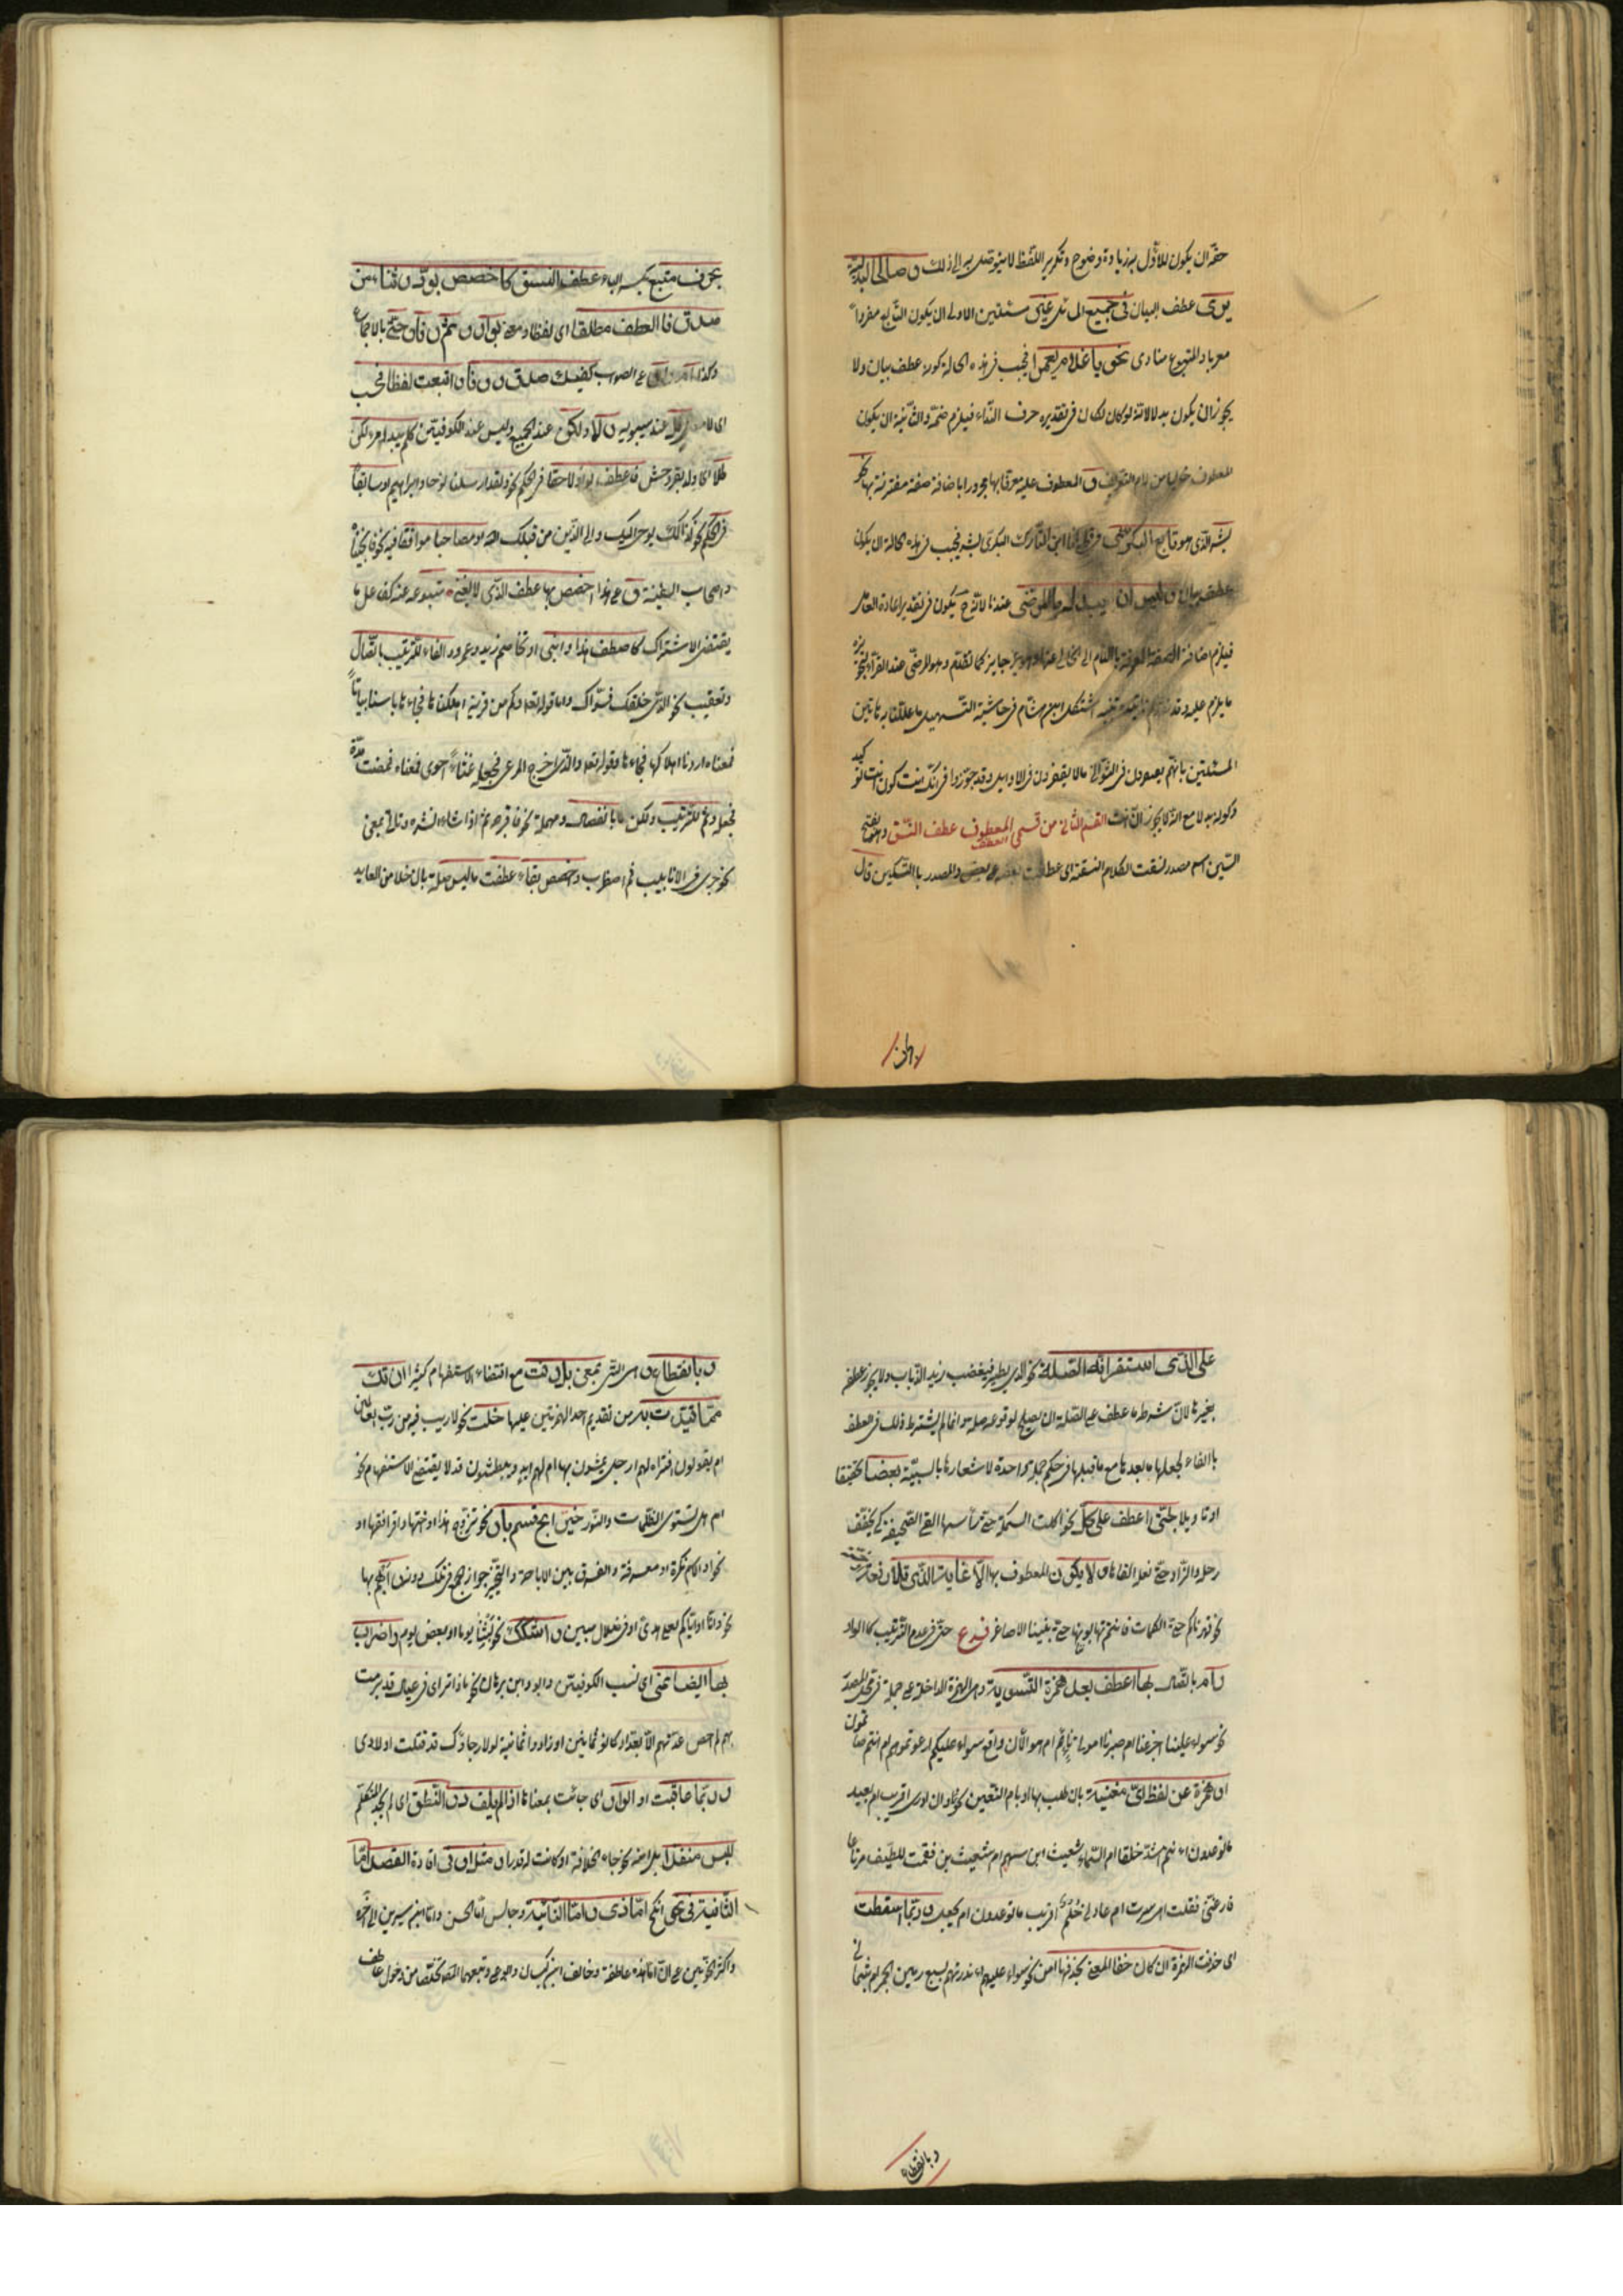 حقه ان يكون للاول به زيادة وضوح وتكرير اللفظ لا يتوصل به الى ذلك وصالحا لبدلية
يرى عطف البيان في جميع المسائل غير مسئلتين الاولى ان يكون التابع مفردا
معربا والمتبوع منادى نحو يا غلام يعمرا فيجب في هذه الحالة كونه عطف بيان ولا
يجوز ان يكون بدلا لانه لو كان لكان في تقديره حرف النداء فيلزم ضمه والثانية ان يكون
المعطوف خاليا من لام التعريف والمعطوف عليه معرفا بها مجرورا باضافة صفة مقترنة بها نحو
بشر الذي هو تابع البكري في انا ابن التارك البكري بشر فيجب في هذه الحالة ان يكون
عطف بيان وليس ان يبدل بالمرضي عندنا لانه ح يكون في تقدير اعادة العامل
فيلزم اضافة الصفة المعرفة باللام الى الخالي عنها وهو غير جايز كما تقدم وهو المرضي عند الفراء لتجويزه
ما يلزم عليه وقد استشكل ابن هشام في حاشية التسهيل ما عللنا به هاتين
المسئلتين بانهم يغتفرون في الثواني ما لا يغتفرون في الاوايل وقد جوزوا في انك انت كون انت توكيد
وكونه بدلا مع انه لا يجوز ان انت القسم الثاني من قسمي المعطوف عطف النسق وهو بفتح
السين اسم مصدر نسقت الكلام انسقه اى عطفت بعضه على بعض والمصدر بالتسكين قال
بحرف متبع بكسر الباء عطف النسق كاخصص بود وثناء من
صدق فالعطف مطلقا اى لفظا ومعنى بواو وثم وفاء وحتى بالاجماع
وكذا ام واو على الصواب كفيك صدق ووفا واتبعت لفظا فحسب
اى لا معنى بل عند سيبويه ولا ولكن عند الجميع وليس عند الكوفيين كلم يبد امرء لكن
طلا اى ولد بقر وحش فاعطف بواو لاحقا في الحكم نحو ولقد ارسلنا نوحا وابراهيم او سابقا
في الحكم نحو كذلك يوحى اليك والى الذين من قبلك الله او مصاحبا موافقا فيه نحو فانجيناه
واصحاب السفينة وعلى هذا اخصص بها عطف الذى لا يغنى متبوعه عنه كفاعل ما
يقتضى الاشتراك كاصطف هذا وابنى او تخاصم زيد وعمرو والفاء للترتيب باتصال
وتعقيب نحو الذى خلقك فسواك واما قوله تعالى وكم من قرية اهلكناها فجاءها باسنا بياتا
فمعناه اردنا اهلاكها فجاءها وقوله تعالى والذى اخرج المرعى فجعله غثاء احوى فمعناه فمضت مدة
فجعله وثم للترتيب ولكن بانفصال ومهلة نحو فاقبره ثم اذا شاء انشره وتاتى بمعنى
نحو جرى في الانابيب ثم اضطرب واخصص بفاء عطفت ما ليس صلة بان خلا من العايد
على الذى استقر انه الصلة نحو الذى يطير فيغضب زيد الذباب ولا يجوز عطف
بغيرها لان شرط ما عطف على الصلة ان يصلح لوقوعه صلة وانما لم يشترط ذلك في العطف
بالفاء لجعلها ما بعدها مع ما قبلها في حكم جملة واحدة لاشعارها بالسببية بعضا تحقيقا
او تاويلا بحتى اعطف على كل نحو اكلت السمكة حتى رأسها القى الصحيفة كى يخفف
رحله والزاد حتى نعله القاها ولا يكون المعطوف بها الا غاية الذى تلا
نحو قهرناكم حتى الكماة فانتم تهابوننا حتى بنينا الاصاغر فرع حتى في عدم الترتيب كالواو
وام باتصال بها اعطف بعد همزة التسوية وهى الهمزة الداخلة على جملة في محل المصدر
نحو سواء علينا اجزعنا ام صبرنا اموتى ناء ام هو الان واقع سواء عليكم ادعوتموهم ام انتم صامتون
او همزة عن لفظ اى مغنية بان طلب بها او بام التعيين نحو وان ادرى اقريب ام بعيد
ما توعدون ءانتم اشد خلقا ام السماء شعيث ابن سهم ام شعيث بن فقمت للطيف مرتاعا
فارقنى فقلت اهى سرت ام عادنى حلم اقريب ما توعدون ام بعيد وربما اسقطت
اى حذفت الهمزة ان كان خفا المعنى بحذفها امن نحو سواء عليهم ءانذرتهم بسبع رمين الجمر ام بثمان
وبانقطاع وهى التى بمعنى بل وفت مع اقتضاء الاستفهام كثيرا ان تك
مما قيدت به من تقديم احد الهمزتين عليها خلت نحو لا ريب فيه من رب العالمين
ام يقولون افتراه الهم ارجل يمشون بها ام لهم ايد يبطشون وقد لا يقتضى الاستفهام نحو
ام هل تستوى الظلمات والنور خير ابح قسم باو نحو تزوج هذا او اختها واقرا فقها او
نحوا والاسم نكرة او معرفة والفرق بين الاباحة والتخيير جواز الجمع في تلك دونه وابهم بها
نحو وانا او اياكم لعلى هدى او في ضلال مبين واشكك نحو لبثنا يوما او بعض يوم واضراب
بها ايضا نمى اى نسب الكوفيين وابو على وابن برهان نحو ماذا ترى في عيال قد برمت
بهم لم احص عدتهم الا بعداد كانوا ثمانين او زادوا ثمانية لولا رجاؤك قد قتلت اولادى
وربما عاقبت او الواو اى جاءت بمعناها اذا لم يلف ذو النطق اى لم يجد المتكلم
للبس منفذا بل امنه نحو جاء الخلافة او كانت له قدرا ومثل او في افادة القصد اما
الثانية في نحو انكح اما ذى واما النائية وجالس اما الحسن واما ابن سيرين الى اخره
واكثر النحويين على ان اما هذه عاطفة وخالف ابن كيسان وابو على وتبعهما المصنف تخلصا من دخول عاطف
وبانقطاع